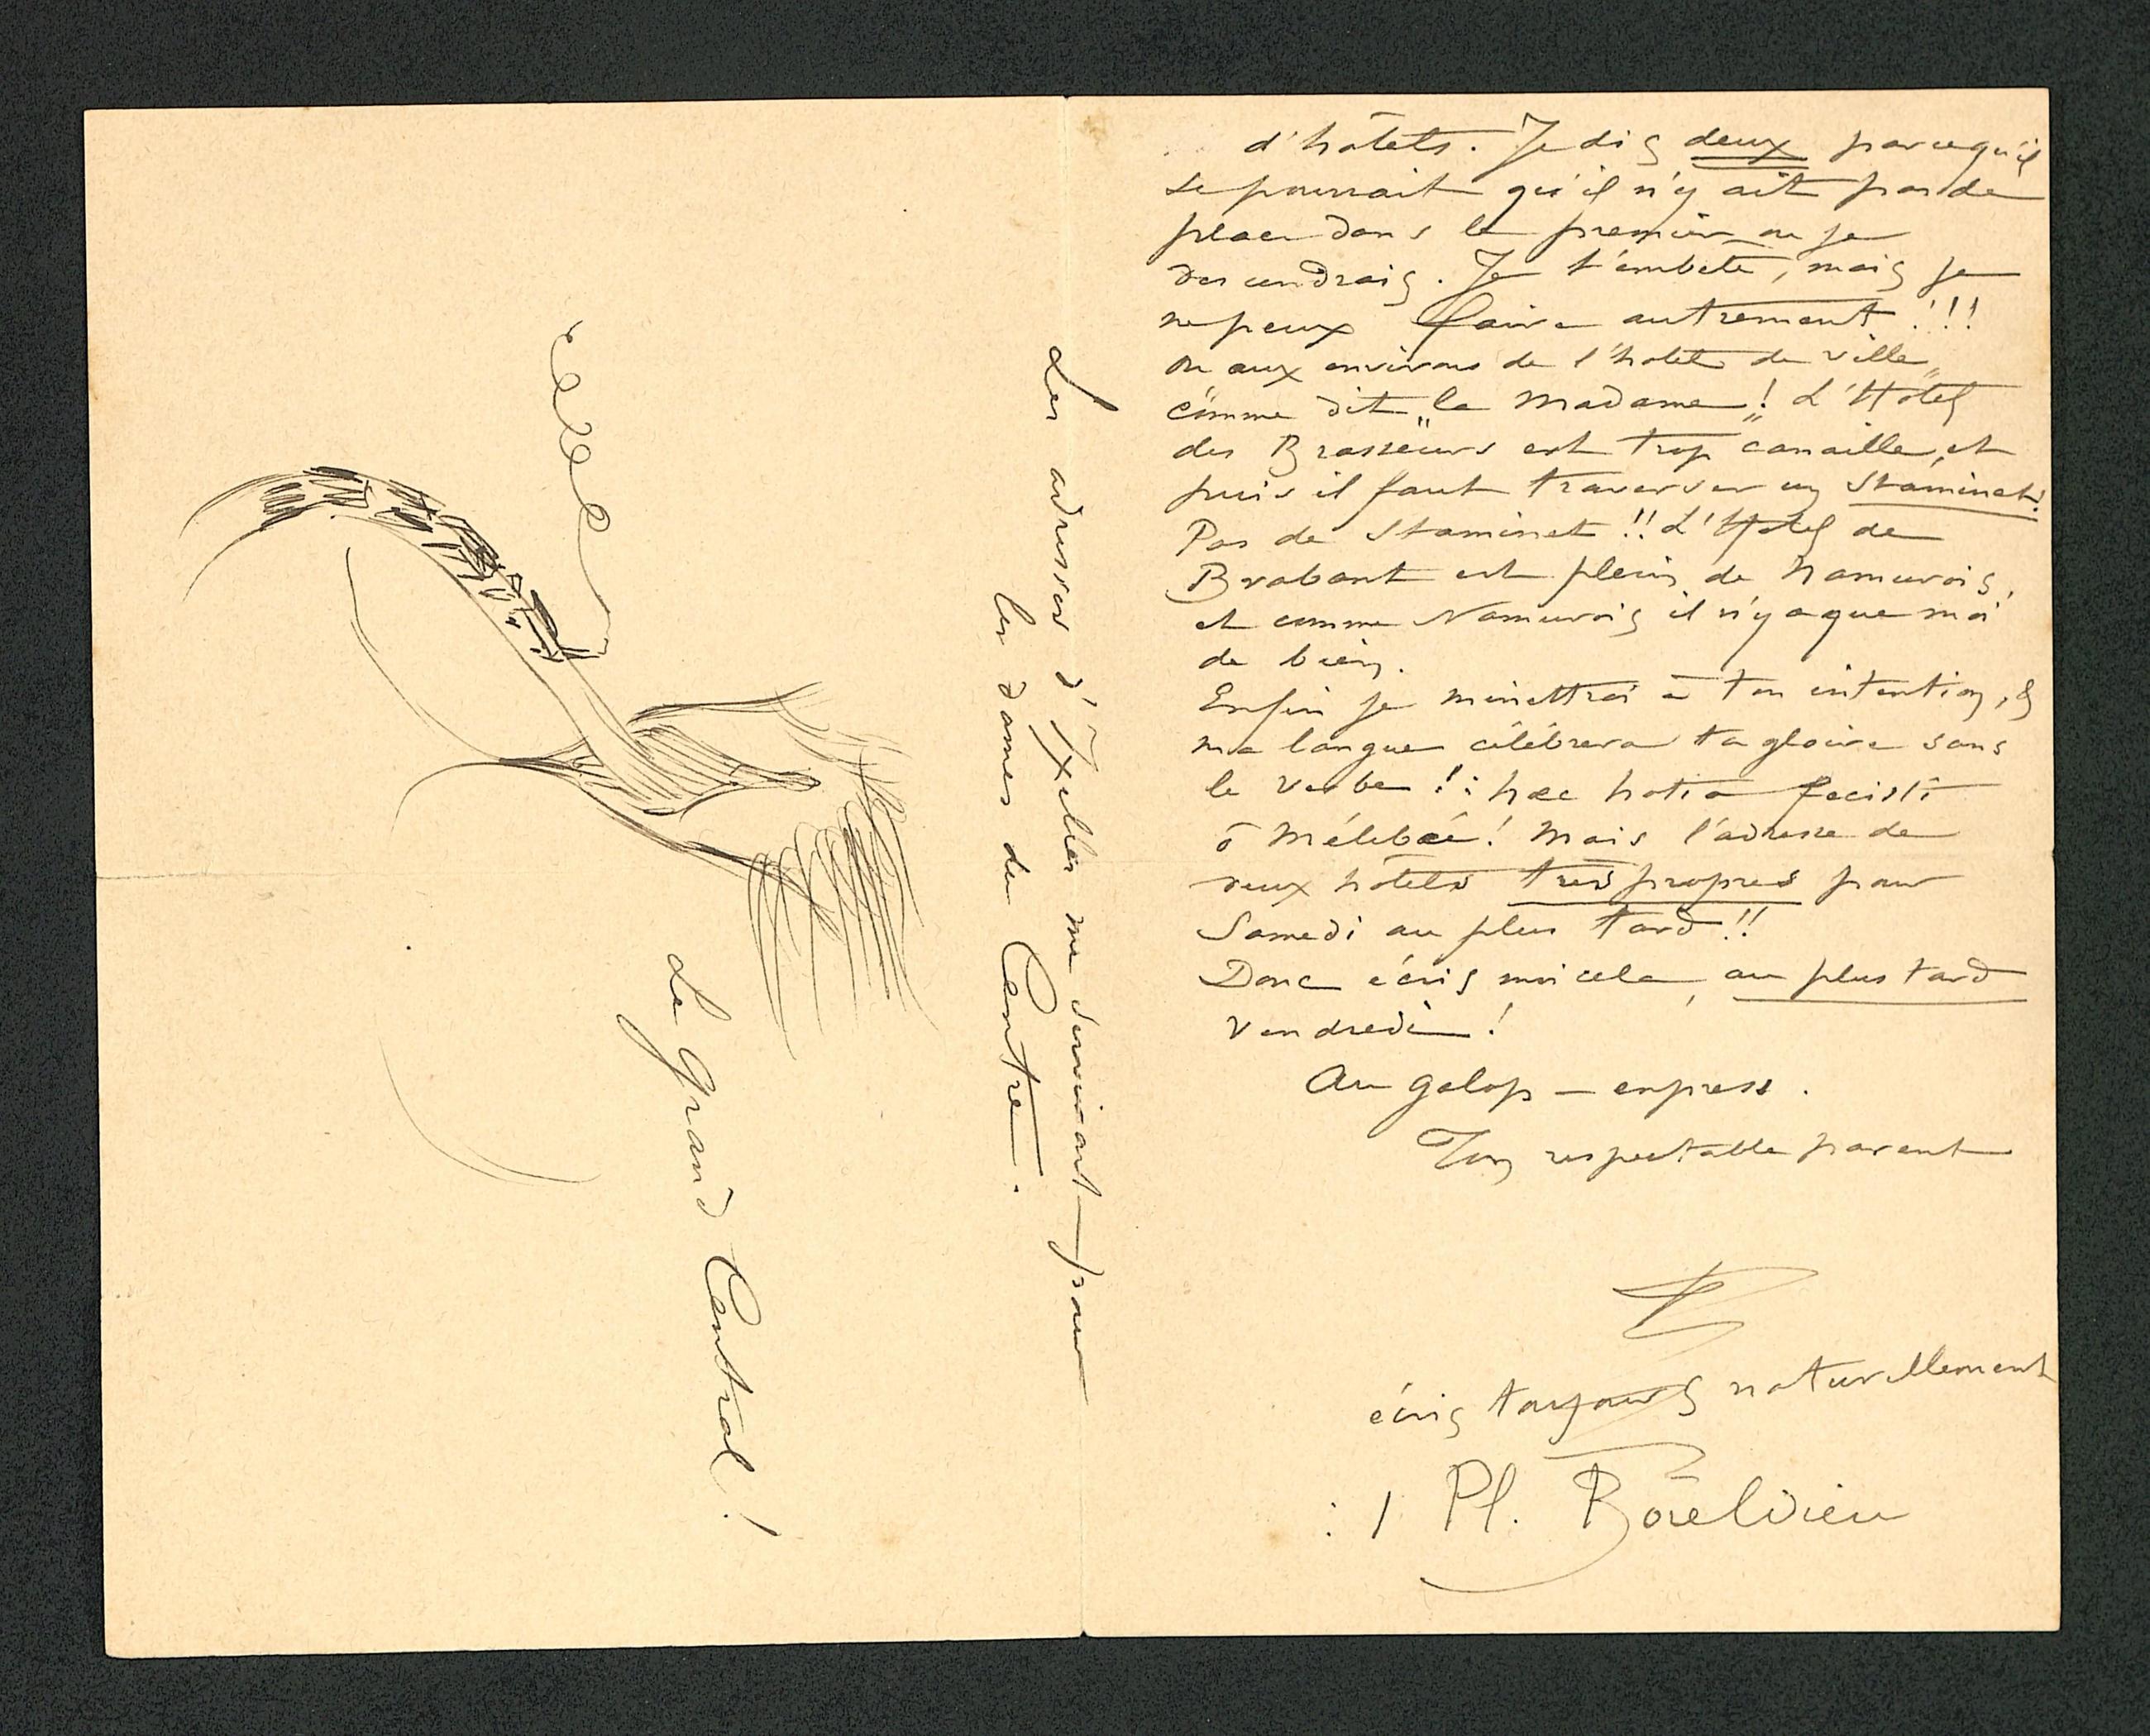 d'hôtels. Je dis deux parcequ'il
se pourrait qu'il n'y ait pas de
place dans le premier où je
descendrais. Je t'embête, mais je
ne peux faire autrement !!!
On aux environs de l'hotel de ville„
cömme dit „la Madame„! L'Hôtel
des Brasseurs est trop canaille, et
puis il faut traverser un Staminet!
Pas de Staminet !! L'Hotel de
Brabant est plein de Namurois,
et comme Namurois il n'y a que moi
de bien.
Enfin je minettrai à ton intention, &
ma langue célébrera ta gloire sans
le verbe ! : hæc hotia fecisti
ô Mélibæé ! Mais l'adresse de
deux hôtels très propres pour
Samedi au plus tard !!
Donc écris moi cela, au plus tard
vendredi !
Au galop – express.
Ton respectable parent
écris toujours naturellement
: 1 Pl. Boieldieu
Les adresses d'Ixelles me serviront pour
les dames du Centre.
Le Grand Central !